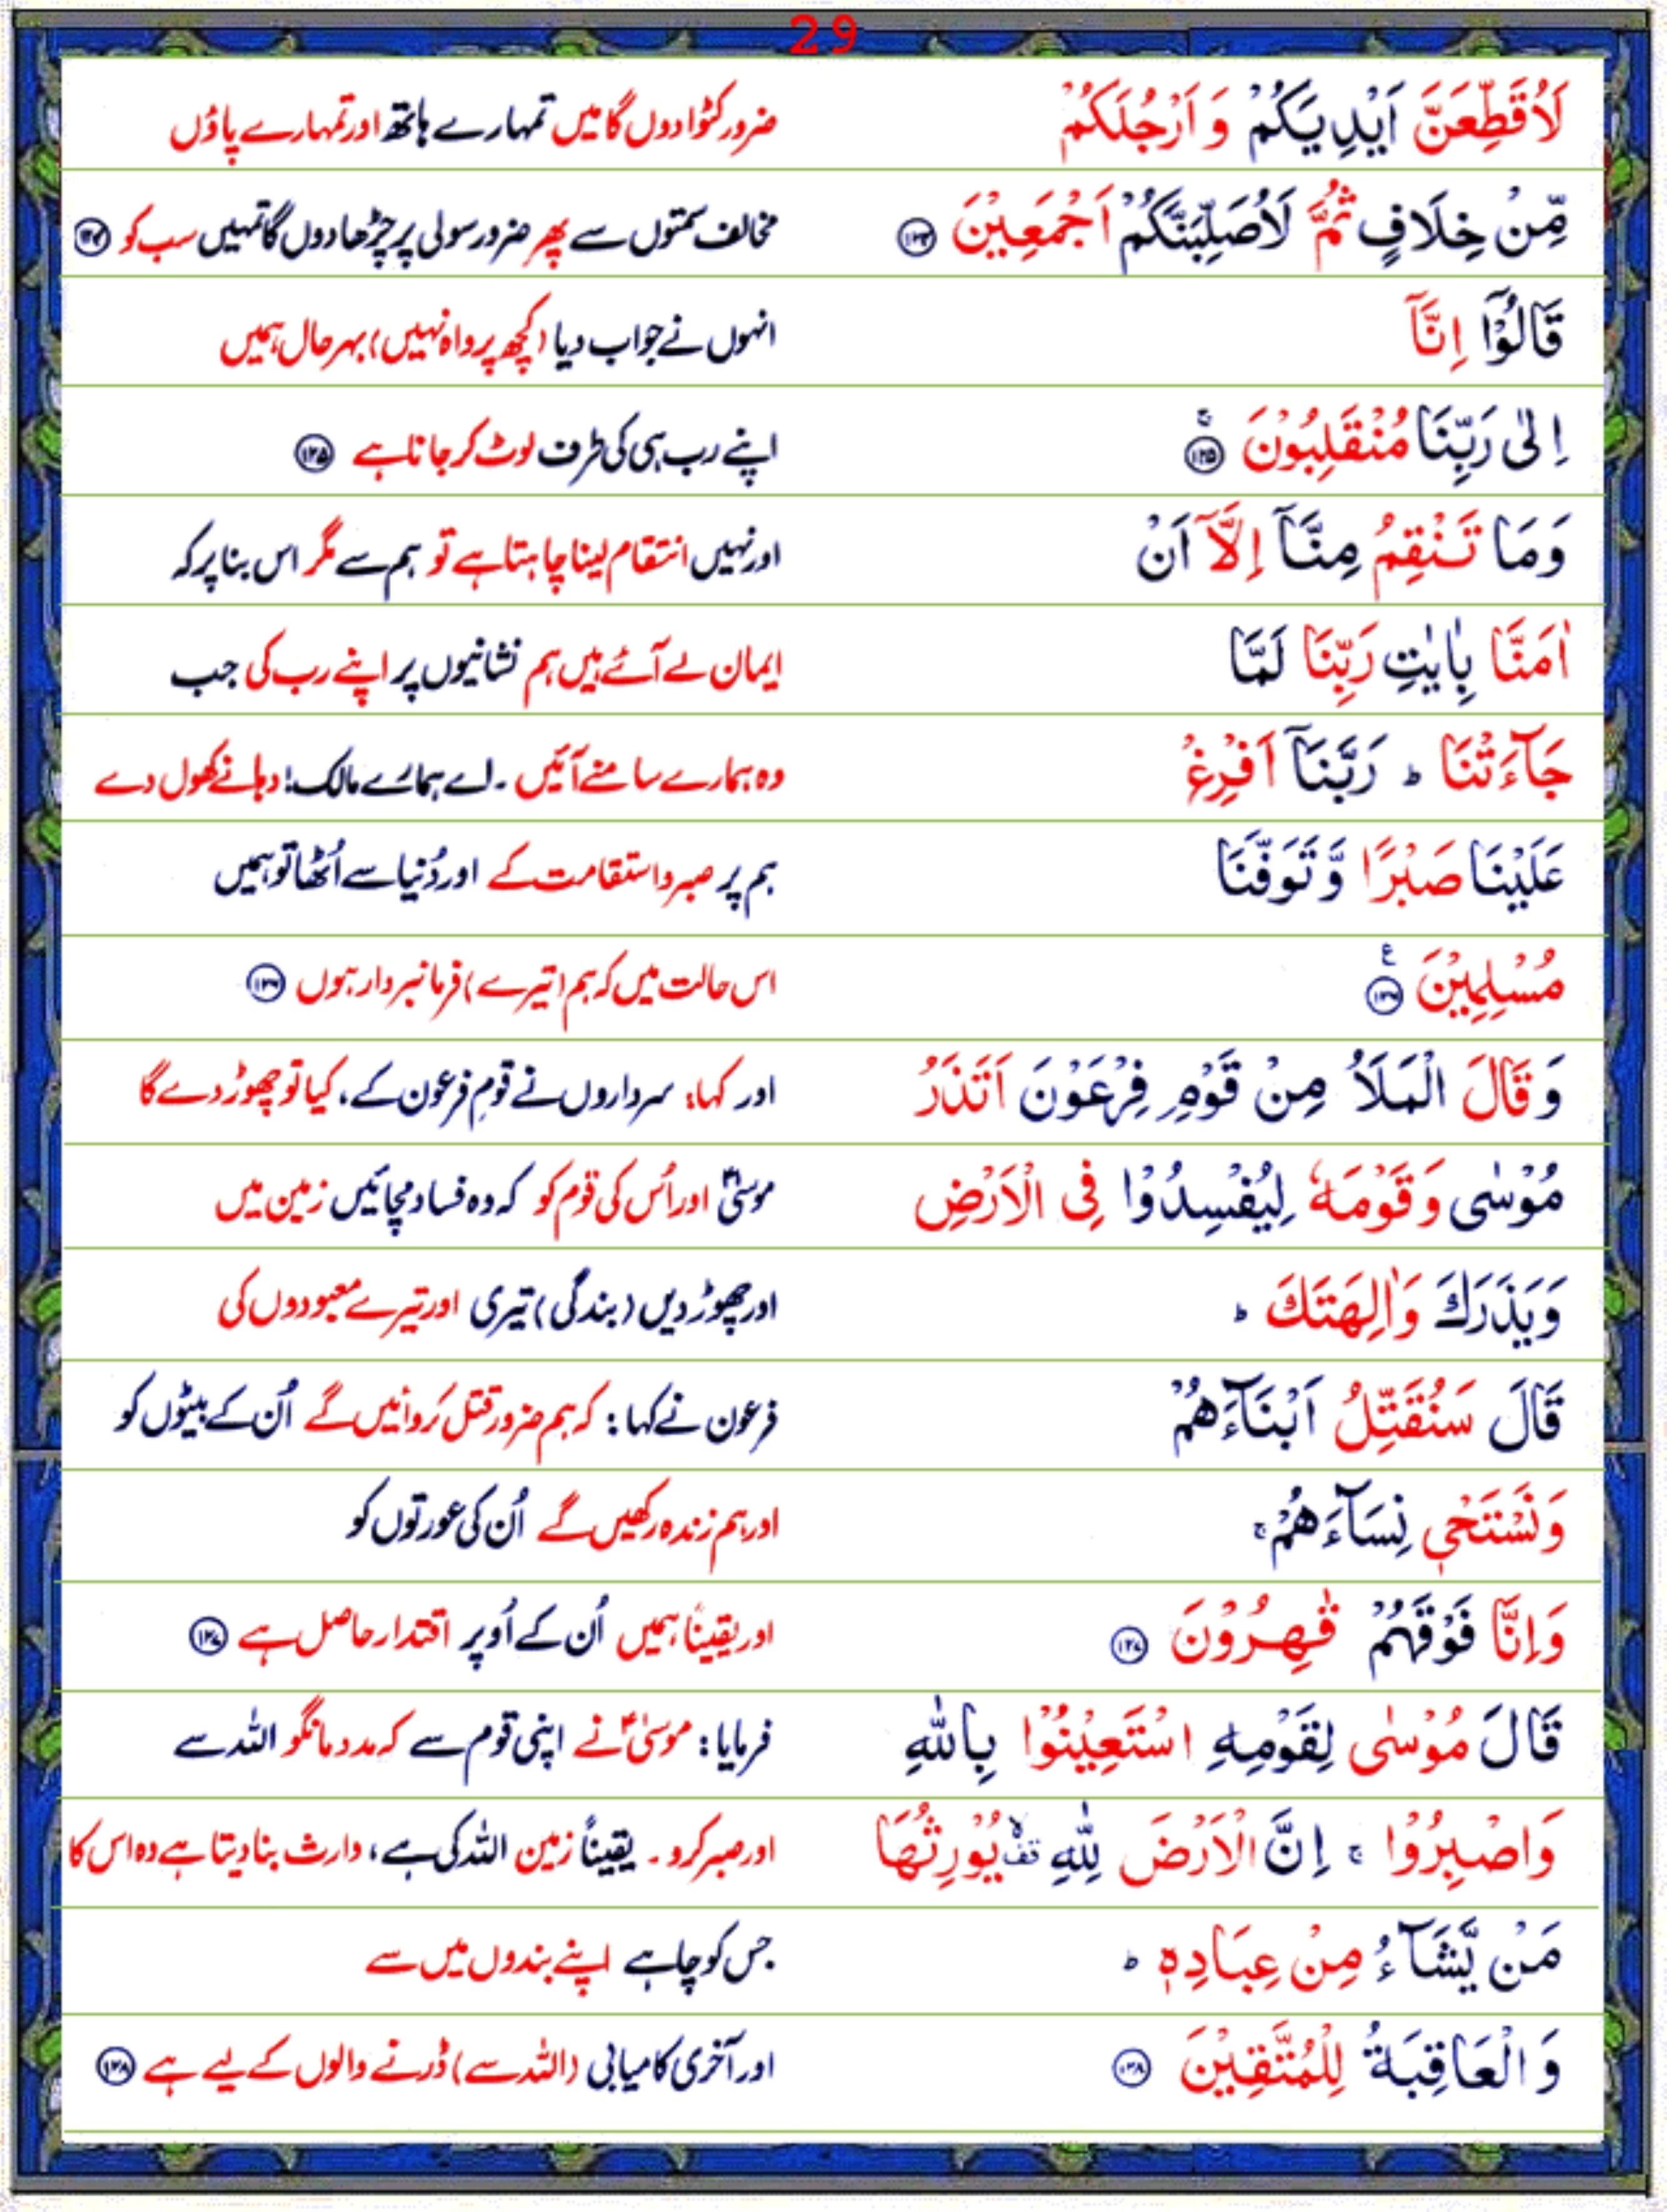 29
لَاُقَطِّعَنَّ اَيْدِيَكُمْ وَ اَرْجُلَكُمْ ضرور کٹوا دوں گا میں تمہارے ہاتھ اور تمہارے پاؤں
مِّنْ خِلَافٍ ثُمَّ لَاُصَلِّبَنَّكُمْ اَجْمَعِيْنَ ۱۲۴ مخالف سمتوں سے پھر ضرور سولی پر چڑھا دوں گا تمہیں سب کو ۱۲۴
قَالُوْٓا اِنَّآ انہوں نے جواب دیا (کچھ پرواہ نہیں) بہر حال ہمیں
اِلٰى رَبِّنَا مُنْقَلِبُوْنَ ۚ ۱۲۵ اپنے رب ہی کی طرف لوٹ کر جانا ہے ۱۲۵
وَمَا تَنْقِمُ مِنَّآ اِلَّآ اَنْ اور نہیں انتقام لینا چاہتا ہے تو ہم سے مگر اس بنا پر کہ
اٰمَنَّا بِاٰيٰتِ رَبِّنَا لَمَّا ایمان لے آئے ہیں ہم نشانیوں پر اپنے رب کی جب
جَآءَتْنَا ؕ رَبَّنَآ اَفْرِغْ وہ ہمارے سامنے آئیں ۔ اے ہمارے مالک! دہانے کھول دے
عَلَيْنَا صَبْرًا وَّ تَوَفَّنَا ہم پر صبر و استقامت کے اور دُنیا سے اُٹھا تو ہمیں
مُسْلِمِيْنَ ۱۲۶ ع اس حالت میں کہ ہم (تیرے) فرمانبردار ہوں ۱۲۶
وَ قَالَ الْمَلَاُ مِنْ قَوْمِ فِرْعَوْنَ اَتَذَرُ اور کہا: سرداروں نے قومِ فرعون کے، کیا تو چھوڑ دے گا
مُوْسٰى وَ قَوْمَهٗ لِيُفْسِدُوْا فِى الْاَرْضِ موسیٰؑ اور اُس کی قوم کو کہ وہ فساد مچائیں زمین میں
وَيَذَرَكَ وَاٰلِهَتَكَ ؕ اور چھوڑ دیں (بندگی) تیری اور تیرے معبودوں کی
قَالَ سَنُقَتِّلُ اَبْنَآءَهُمْ فرعون نے کہا: کہ ہم ضرور قتل کروائیں گے اُن کے بیٹوں کو
وَنَسْتَحْىٖ نِسَآءَهُمْ ۚ اور ہم زندہ رکھیں گے اُن کی عورتوں کو
وَاِنَّا فَوْقَهُمْ قٰهِرُوْنَ ۱۲۷ اور یقیناً ہمیں اُن کے اُوپر اقتدار حاصل ہے ۱۲۷
قَالَ مُوْسٰى لِقَوْمِهِ اسْتَعِيْنُوْا بِاللّٰهِ فرمایا: موسیٰؑ نے اپنی قوم سے کہ مدد مانگو اللہ سے
وَاصْبِرُوْا ۚ اِنَّ الْاَرْضَ لِلّٰهِ ۟ۙ يُوْرِثُهَا اور صبر کرو ۔ یقیناً زمین اللہ کی ہے، وارث بنا دیتا ہے وہ اس کا
مَنْ يَّشَآءُ مِنْ عِبَادِهٖ ؕ جس کو چاہے اپنے بندوں میں سے
وَالْعَاقِبَةُ لِلْمُتَّقِيْنَ ۱۲۸ اور آخری کامیابی (اللہ سے) ڈرنے والوں کے لیے ہے ۱۲۸